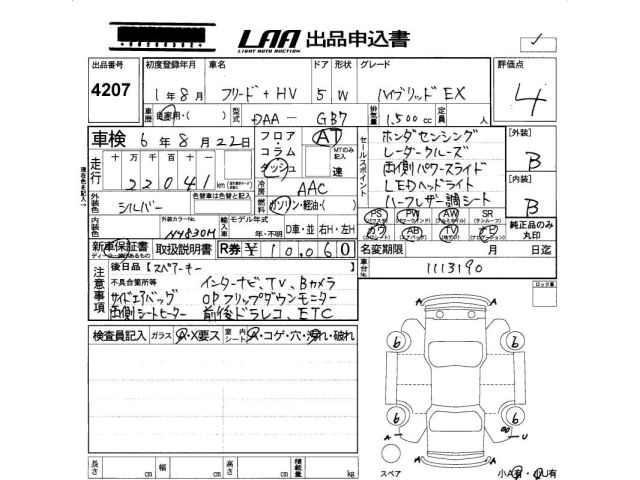 LAA 出品申込書
LIGHT AUTO AUCTION
出品番号 初度登録年月 車名 ドア 形状 グレード 評価点
4207 1年8月 フリード+HV 5 W ハイブリッドEX 4
車歴 自家用・( ) 型式 DAA- GB7 排気量 1,500cc 定員 人
車検 6年8月22日 フロア・コラム ダッシュ AT MTのみ記入 速
セールスポイント ホンダセンシング [外装]
レーダークルーズ B
両側パワースライド
LEDヘッドライト [内装]
ハーフレザー調シート B
走行 十万千百十
22041km
冷房 AAC
外装色 シルバー 色替車は色替と記入 燃料 ガソリン・軽油・( )
PS PW AW SR
カワ AB TV ナビ 純正品のみ丸印
内装色 外装カラーNo. NH830M 輸入車 モデル年年式 年・不明 D車・並 右H・左H
新車保証書 取扱説明書 R券 ¥10,060 名変期限 月 日迄
注意事項 後日品【スペアーキー 車台No. 1113190
不具合箇所等 インターナビ、TV、Bカメラ ロック車
サイドエアバッグ OPフリップダウンモーター
両側シートヒーター 前後ドラレコ、ETC
検査員記入 ガラス A・X要ス 室内シート A・コゲ・穴・汚れ・破れ
A A
6 6
6 6
A U
A A
長さ cm 幅 cm 高さ cm 積載量 kg スペア 小A有・小U有